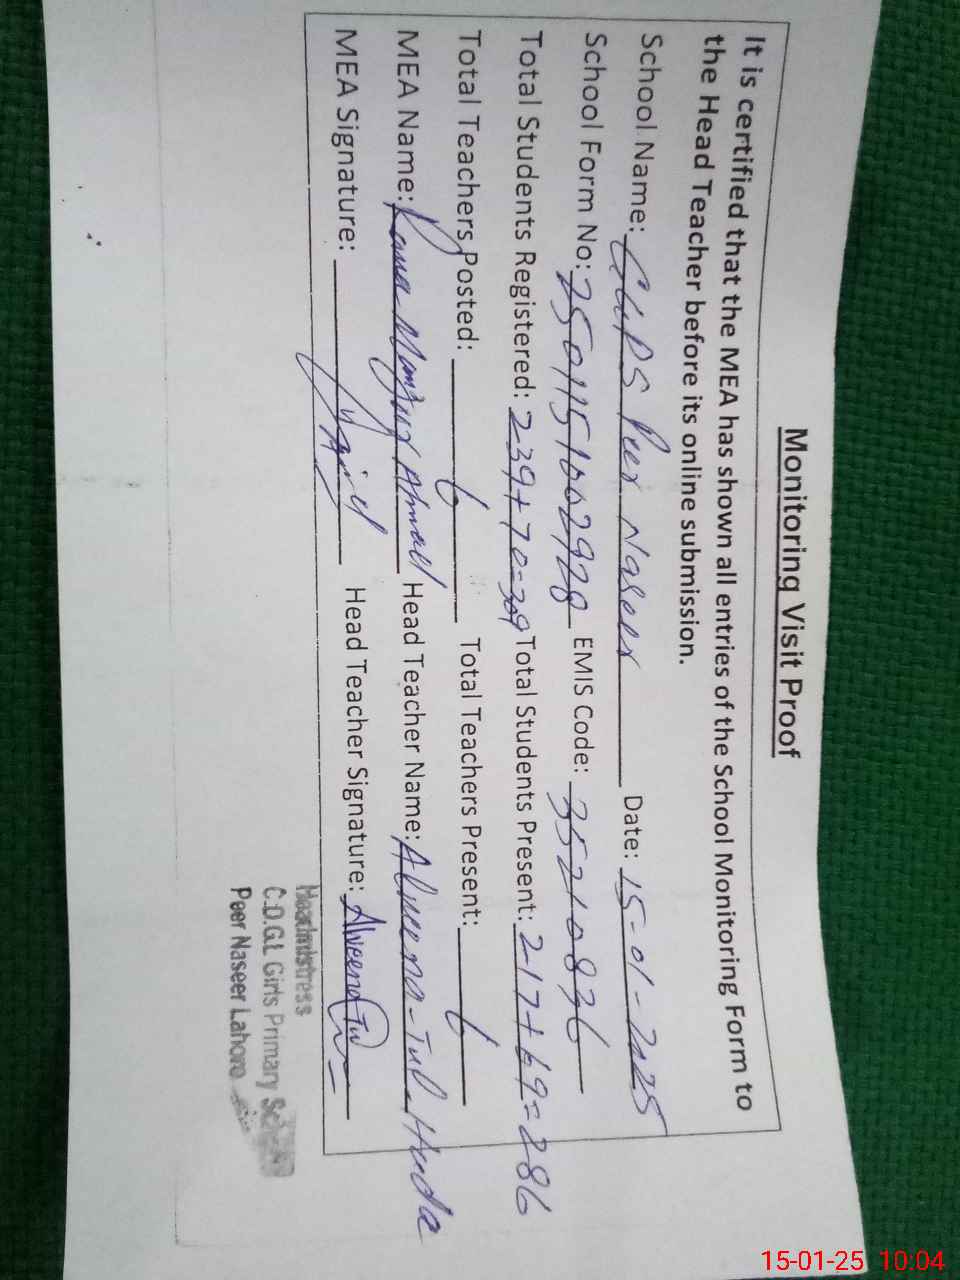 Monitoring Visit Proof
It is certified that the MEA has shown all entries of the School Monitoring Form to
the Head Teacher before its online submission.
School Name: GGPS Peer Naseer Date: 15-01-2025
School Form No: 2501151002928 EMIS Code: 35210836
Total Students Registered: 239+70=309 Total Students Present: 217+69=286
Total Teachers Posted: 6 Total Teachers Present: 6
MEA Name: Rana Manzoor Ahmad Head Teacher Name: Alveena-Tul-Huda
MEA Signature: Head Teacher Signature: Alveena
Headmistress
C.D.G.L Girls Primary School
Peer Naseer Lahore
15-01-25 10:04